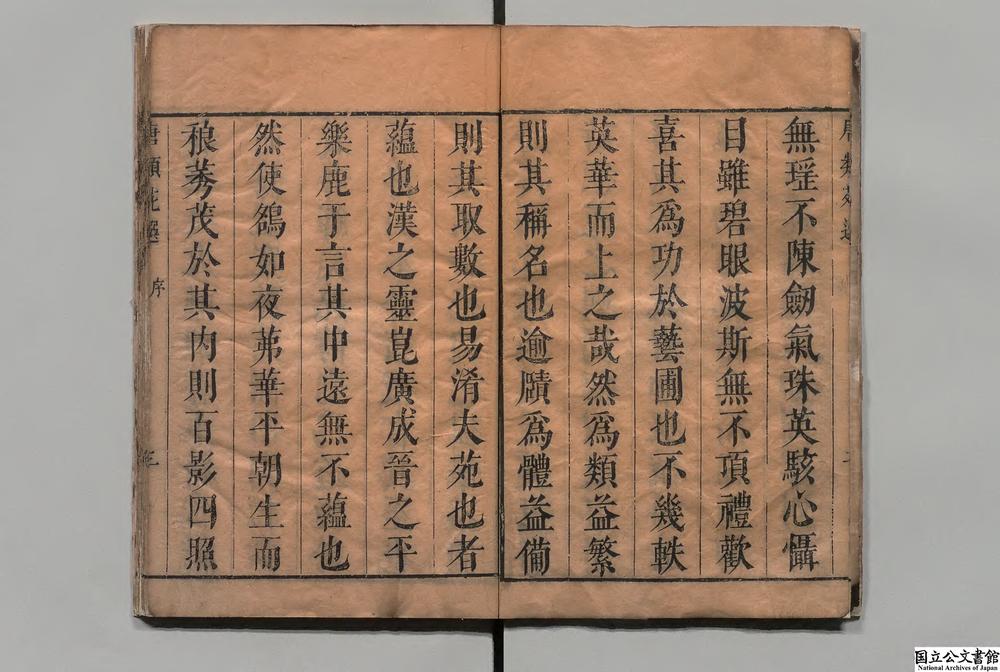 無瑶不陳劒氣珠英駭心懾
目雖碧眼波斯無不項禮歡
喜其爲功於藝圃也不幾軼
英華而上之哉然爲類益繁
則其稱名也逾賾爲體益備
則其取數也易淆夫苑也者
蘊也漢之靈崑廣成晉之平
樂鹿子言其中遠無不蘊也
然使鵒如夜茀華平朝生而
稂莠茂於其内則百影四照
唐類苑選
序
国立公文書館
National Archives of Japan